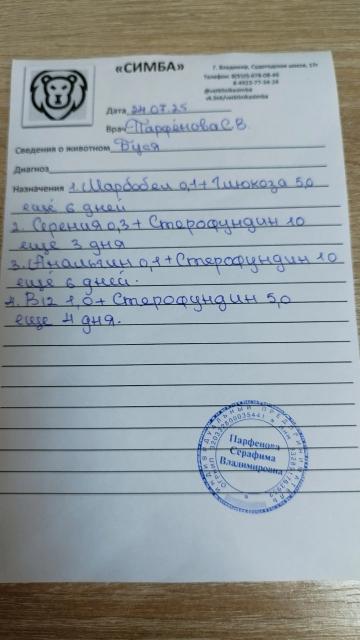 «СИМБА»
г. Владимир, Судогодское шоссе, 17г
Телефон: 8(910)-678-08-46
@vetklinikasimba
vk.link/vetklinikasimba
Дата 24.07.25
Врач Парфенова С.В.
Сведения о животном Буся
Диагноз
Назначения 1. Марбобел 0,1 + Глюкоза 5,0
ещё 6 дней
2. Серения 0,3 + Стерофундин 10
ещё 3 дня
3. Анальгин 0,1 + Стерофундин 10
ещё 6 дней.
4. В12 1,0 + Стерофундин 5,0
еще 4 дня.
ИНДИВИДУАЛЬНЫЙ ПРЕДПРИНИМАТЕЛЬ
Парфенова
Серафима
Владимировна